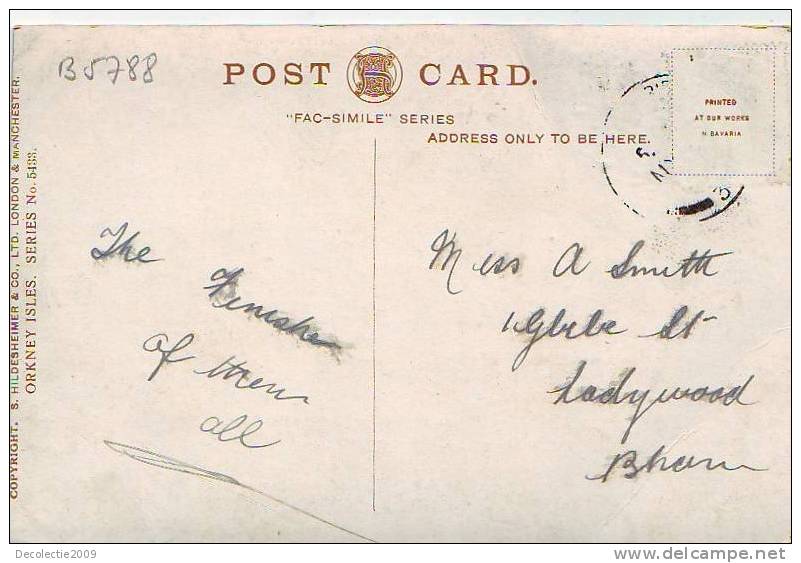 B5788
POST CARD.
"FAC-SIMILE" SERIES
ADDRESS ONLY TO BE HERE.
PRINTED
AT OUR WORKS
IN BAVARIA
COPYRIGHT. S. HILDESHEIMER & CO. LTD. LONDON & MANCHESTER.
ORKNEY ISLES. SERIES No. 5433.
The
Finishe
of them
all
Miss A Smith
1 Glebe St
Ladywood
Bham
Decolectie2009
www.delcampe.net